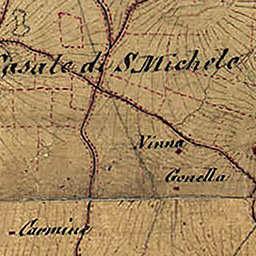 Casale di S. Michele
Vinna
Gonella
Carmine